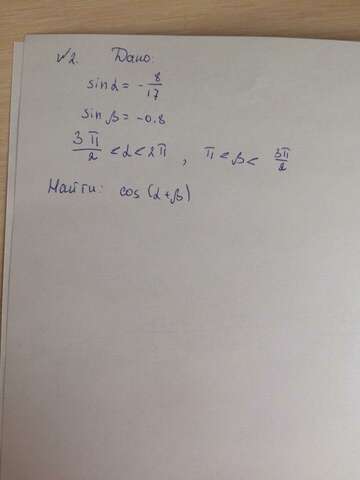 №2. Дано:
sin α = - 8/17
sin β = -0.8
3π/2 < α < 2π , π < β < 3π/2
Найти: cos (α+β)